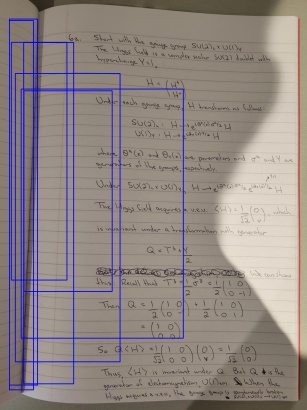 6a. Start with the gauge group SU(2)_L × U(1)_Y
The Higgs field is a complex scalar SU(2) doublet with
hypercharge Y=1,
H = (H⁺
H⁰)
Under each gauge group, H transforms as follows
SU(2)_L : H → H
U(1)_Y : H → H
where θᵃ(x) and θ₀(x) are parameters and σᵃ and Y are
generators of the groups, respectively.
Under SU(2)_L × U(1)_Y H → H
The Higgs field acquires a v.e.v. ⟨H⟩ = 1/√2 (0 v), which
is invariant under a transformation with generator
Q = T³ + Y/2
We can show
this. Recall that T³ = 1/2 σ³ = 1/2 (1 0
0 -1)
Then Q = 1/2 (1 0
0 -1) + 1/2 (1 0
0 1)
= (1 0
0 0)
So Q⟨H⟩ = 1/√2 (1 0
0 0) (0
v) = 1/√2 (0
0)
Thus, ⟨H⟩ is invariant under Q. But Q is the
generator of electromagnetism, U(1)em. When the
Higgs acquires a v.e.v, the gauge group is